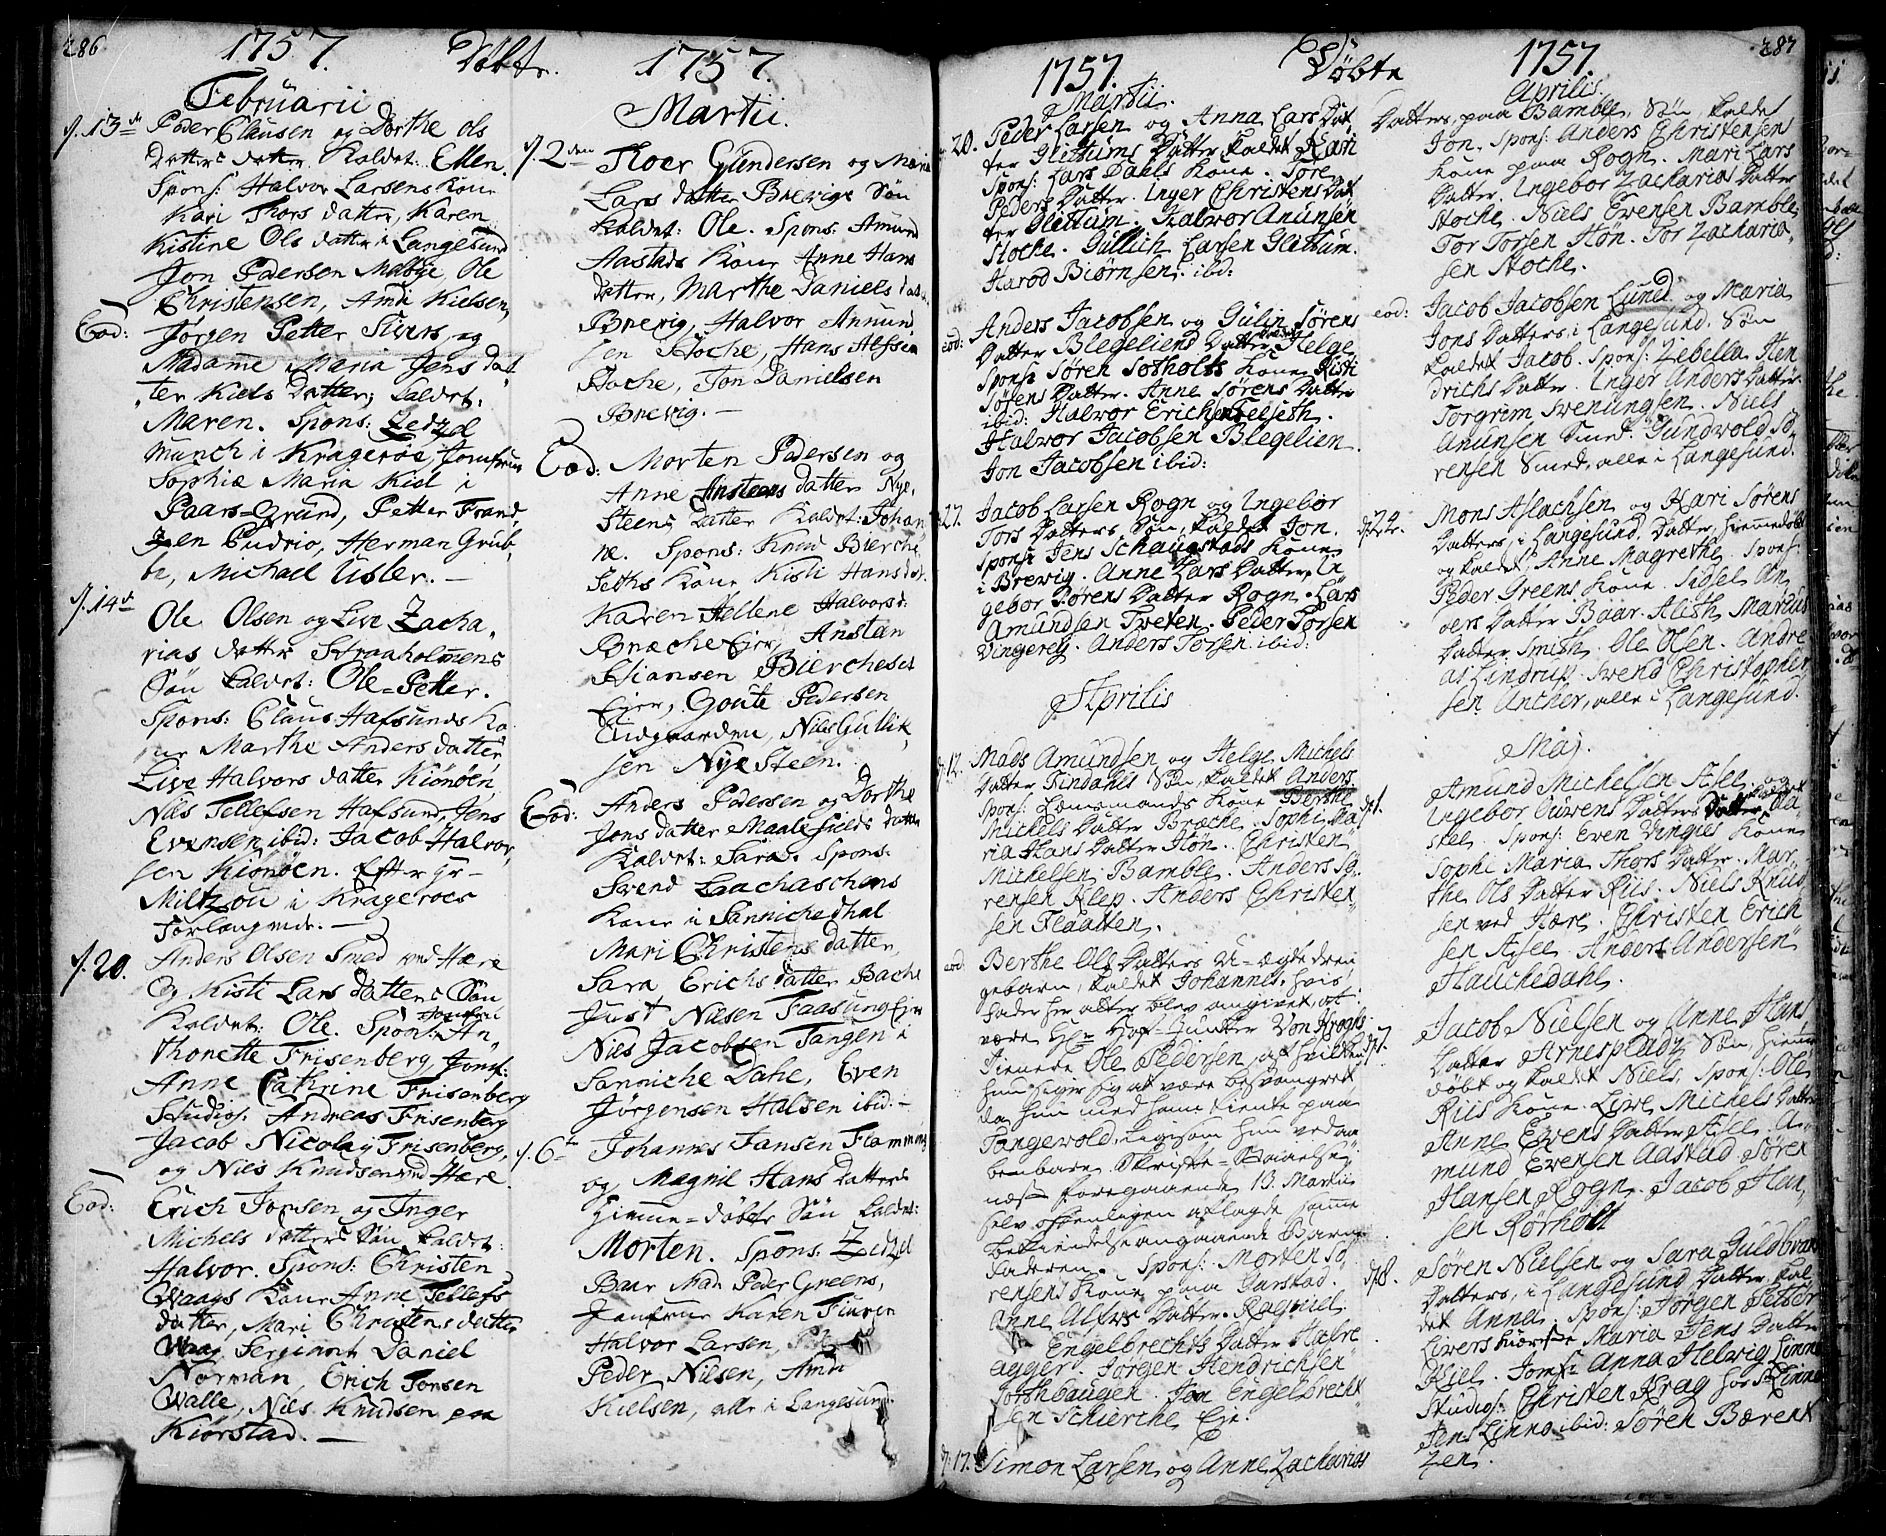 286
1757. Døbte. 1757.
Februarii
d. 13de Peder Clausen og Dorthe Ols
datters datter kaldet: Ellen.
Spons: Halvor Larsens Kone
Kari Thors datter, Karen
Kistine Ols datter i Langesund
Jon Pedersen Ole
Christensen, Amdi Kielsen,
Eod: Jørgen Petter Sivers, og
Madame Maria Jens dat
ter Kiels datter, kaldet:
Maren. Spons: Zedzel
Munch i Krageröe, Jomfrue
Sophie Maria Kiel i
Paars-Grund, Petter Frand
zen Pudrio, Herman Grub
be, Michael Usler.
d. 14de Ole Olsen og Live Zacha
rias datters Straaholmens
Søn kaldet: Ole-Petter.
Spons: Claus Hafsunds Ko
ne Marthe Anders datter,
Live Halvors datter Kiönöen,
Niels Tellefsen Hafsund, Jens
Evensen ibid: Jacob Halvor
sen Kiönöen. Efter Hr
Miltzou i Krageroes
Forlangende.
d. 20. Anders Olsen Smed ved Hære
og Kisti Lars datters Søn
Kaldet: Ole. Spons: Jomfrue An
thonette Frisenberg, Jomf:
Anne Cathrine Frisenberg
Studios. Andreas Frisenberg
Jacob Nicolay Frisenberg,
og Niels Knudsen ved Hære.
Eod: Erich Jonsen og Inger
Michels datters Søn kaldet:
Halvor. Spons: Christen
Waags Kone Anne Tellefs
datter, Mari Christens datter
Waag Sergiant Daniel
Norman, Erich Tonsen
Walle, Niels Knudsen paa
Kiørstad.
Martii.
d. 2den Thoer Gundersen og Maria
Lars datter Brevigs Søn
kaldet: Ole. Spons: Amund
Aastads Kone Anne Hans
datter, Marthe Daniels datter
Brevig, Halvor Annund
sen Stoche, Hans Alfsen
Stoche, Jon Danielsen
Brevig.
Eod: Morten Pedersen og
Anne Anstens datter Nye
Steens datter kaldet: Johan
ne. Spons: Knud Bierche
Seths Kone Kisti Hans dat.
Karen Hellene Halvors d:
Bræche Eie, Anstan
Stiansen Biercheset
Eier, Goute Pedersen
Eidgaarden, Niels Gullik
sen Nye Steen.
Eod: Anders Pedersen og Dorthe
Jons datter Maale fields datter
kaldet: Sara. Spons:
Svend Laachaschens
Kone i Sannichedhal
Mari Christens datter,
Sara Erichs datter Bache
Just Nielsen Faasung Eje
Niels Jacobsen Tangen i
Sanniche Dahl, Even
Jørgensen Halsen ibid.
d. 6te Johannes Jansen Flamming
og Magnil Hans datters
Hiemme-døbte Søn kaldet:
Morten. Spons. Zedzel
Baar Mad: Peder Greens,
Jomfrue Karen Fiuren
Halvor Larsen,
Peder Nielsen, Amdi
Kielsen, alle i Langesund.
287
1757. Døbte 1757
Martii.
20. Peder Larsen og Anna Lars Dat
ter Glittums Datter kaldet Kari
Spons: Lars Dahls Kone. Tore
Peders Datter. Inger Christens Dat
ter Glittum. Halvor Anunsen
Stoche. Gullich Larsen Glittum.
Harod Biørnsen. ibid:
eod: Anders Jacobsen og Gulin Sørens
Datter Blegeliens Datter kaldet Helge
Spons: Søren Sotholts Kone Kisti
Sørens Datter. Anne Sørens Datter
ibid: Halvor Erichsen Felseth.
Halvor Jacobsen Blegelien.
Jon Jacobsen ibid:
27. Jacob Larsen Rogn og Ingebor
Tors Datters Søn, kaldet Jon.
Spons: Jens Schaugstads Kone
i Brevig. Anne Lars Datter, In
gebor Sørens Datter Rogn. Lars
Amundsen Tveten. Peder Torsen
Vingereig. Anders Torsen ibid:
Aprilis
d. 12. Mads Amundsen og Helge Michels
Datter Findahls Søn, kaldet Anders
Spons: Lensmands Kone Berthe
Michels Datter Bræche. Sophi Ma
ria Hans Datter Høn. Christen
Michelsen Bamble. Anders Sø
rensen Klep. Anders Christen
sen Flaatten.
eod Berthe Ols Datters U-ægte dren
gebarn, kaldet Johannes, hvis
fader her atter blev angivet, at
være Hr Hof-Junker Von Kroghs
Tienere Ole Pedersen, af hvilken
hun siger sig at være besvangret
da hun med ham tiente paa
Tangevold, ligesom hun ved aa
benbare Skrifte-Maal
næst foregaaende 13. Martii
selv offentligen aflagde samme
bekiendelse angaaende Barne
faderen. Spons: Morten Sø
rensens Kone paa Garstad.
Anne Alfers Datter. Ragnild
Engelbrechts Datter Hafre
agger. Jørgen Hendrichsen
Jon Engelbrecht
sen Schierche Eje.
d. 17. Simon Larsen og Anne Zacharias
Aprilis.
Datters, paa Bamble, Søn, kaldet
Jon. Spons: Anders Christensens
Kone paa Rogn. Mari Lars
Datter. Ingebor Zacharias Datter
Stoche. Niels Evensen Bamble,
Tor Torsen Høn. Tor Zacharia
sen Stoche.
eod: Jacob Jacobsen Lund og Maria
Jons Datters i Langesund. Søn
kaldet Jacob. Spons: Zebella Hen
drichs Datter. Inger Anders Datter.
Torgrim Svenungsen. Niels
Anunsen Smed. Gundvold Sø
rensen Smed, alle i Langesund.
d. 22. Mons Aslachsen og Kari Sørens
Datters, i Langesund, Datter, hiemmedøbt
og kaldet, Anne Magrethe. Spons:
Peder Greens Kone. Sidsel An
ders Datter Baar. Alith Marius
Datter Smith. Ole Olsen. Andre
as Lindrup. Svend Christopher
sen Ancher, alle i Langesund.
Maj.
d. 1. Amund Michelsen Aslee og
Ingebor Ouvens Datters Datter, kaldet Ma
skel. Spons: Even Vingies Kone
Sophe Maria Thors Datter. Mar
the Ols Datter Riis. Niels Knud
sen ved Hære. Christen Erich
sen Aslee. Anders Andersen
Hauchedahl.
d. 7. Jacob Nielsen og Anne Hans
Datter Arnesplads, Søn, hiemme
døbt og kaldet Niels, Spons: Ole
Riis Kone. Live Michels Datter
Anne Evens Datter Aslee. A
mund Evensen Aastad. Søren
Hansen Rogn. Jacob Han
sen Rørholt
d. 8. Søren Nielsen og Sara Guldbran
Datters, i Langesund Datter, kal
det Anna. Spons: Jørgen Petter
Sivers Maria Jens Datter
Kiel. Jomfr Anna Helwig Linno
Studios: Christen Krag hos
Jens Linno ibid: Søren Bærent
zen.